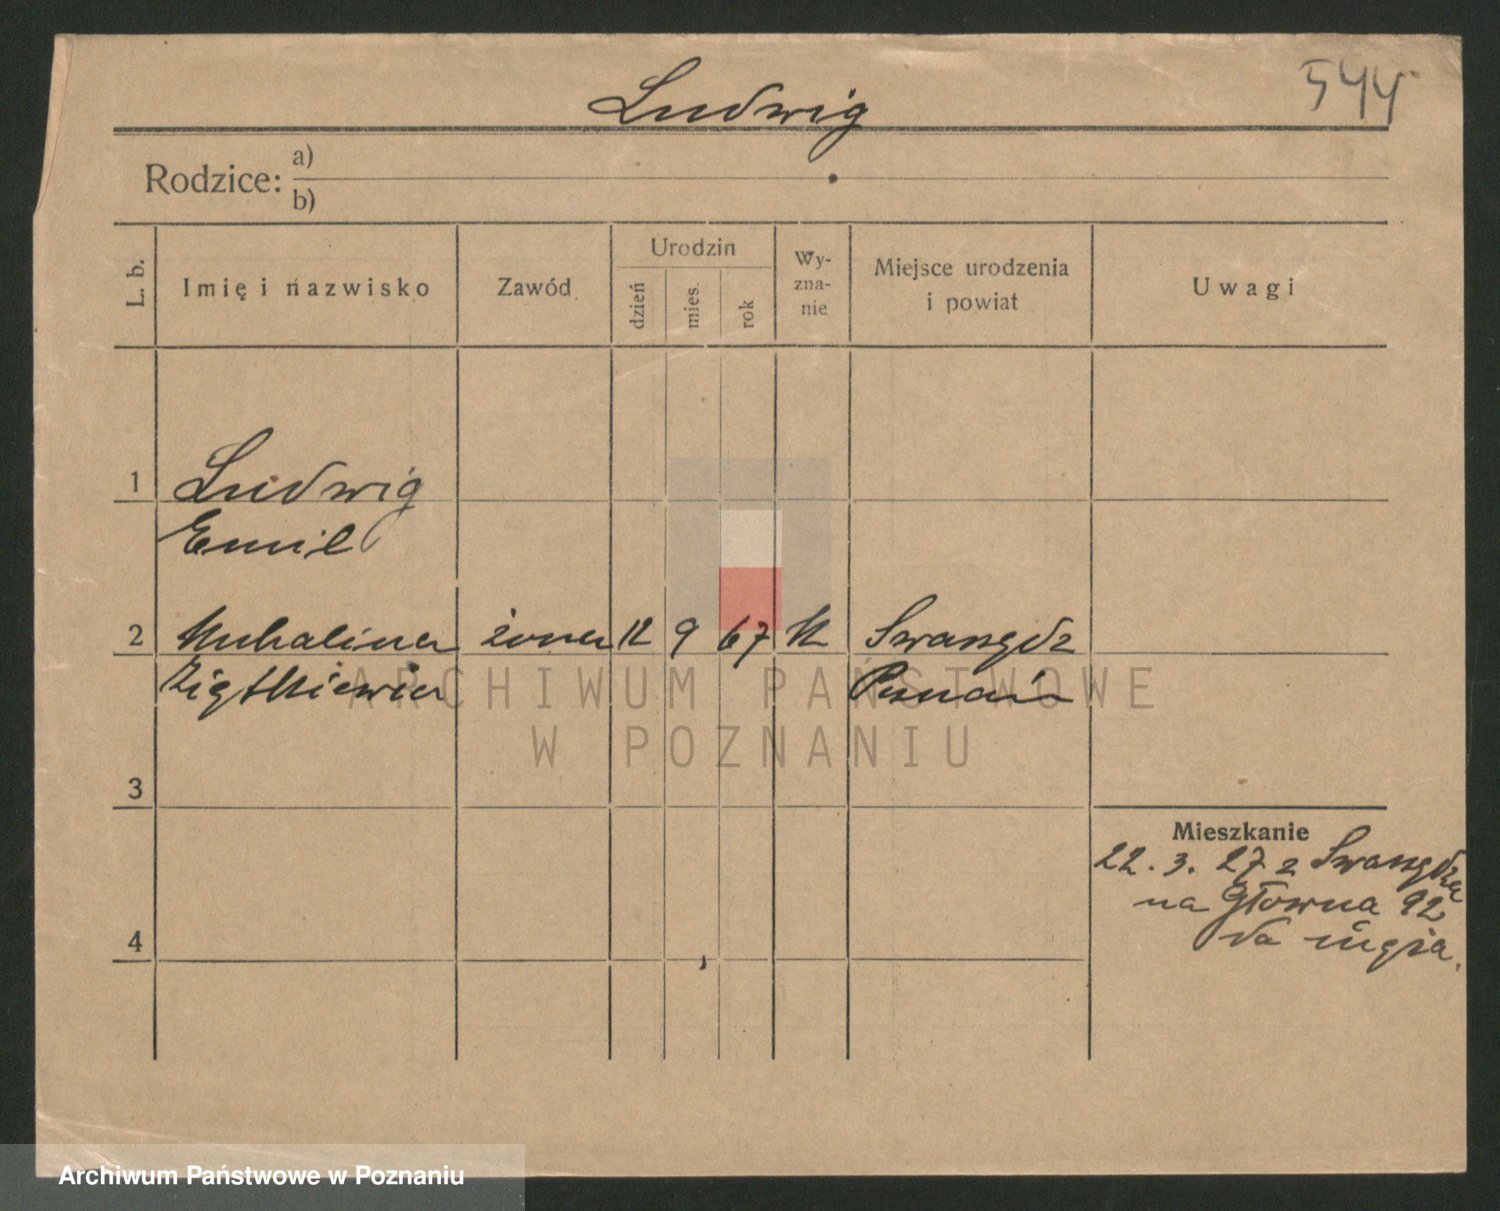 Ludwig
544
Rodzice: a)
b)
L. b.
Imię i nazwisko
Zawód
Urodzin
dzień
mies.
rok
Wy-
zna-
nie
Miejsce urodzenia
i powiat
Uwagi
1
Ludwig
Emil
2 Michalina żona 12 9 67 k Swarzędz
Ziętkiewicz Poznań
3
4
Mieszkanie
22. 3. 27 z Swarzędza
na Główna 92
do męża.
ARCHIWUM PAŃSTWOWE
W POZNANIU
Archiwum Państwowe w Poznaniu